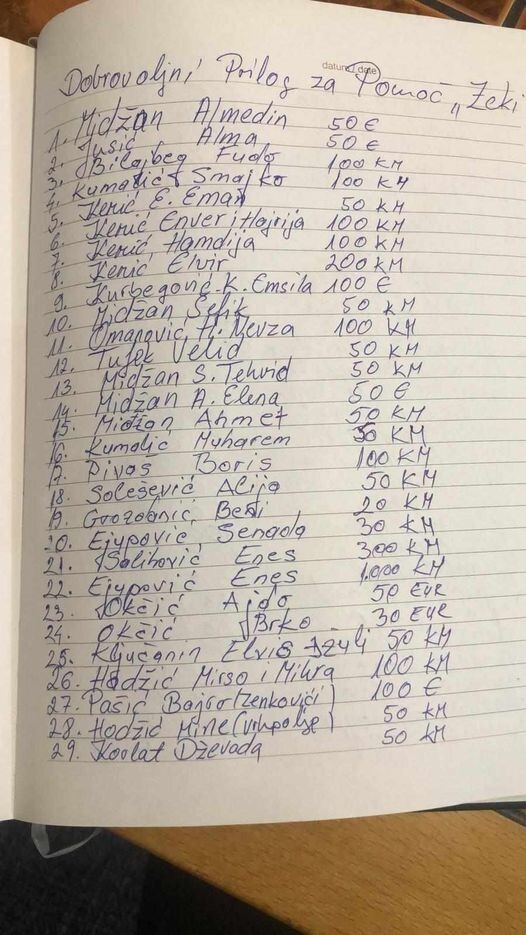 datum / date
Dobrovoljni Prilog za Pomoć "Zeki
1. Midžan Almedin 50 €
2. Jusić Alma 50 €
3. Bilajbeg Fudo 100 KM
4. Kumalić Smajko 100 KM
5. Kenić E. Eman 50 KM
6. Kenić Enver i Hajrija 100 KM
7. Kenić, Hamdija 100 KM
8. Kenić Elvir 200 KM
9. Kurbegović K. Emsila 100 €
10. Midžan Šefik 50 KM
11. Omanović H. Nevza 100 KM
12. Tufek Velid 50 KM
13. Midžan S. Tehvid 50 KM
14. Midžan A. Elena 50 €
15. Midžan Ahmet 50 KM
16. Kumalić Muharem 50 KM
17. Pivaš Boris 100 KM
18. Solešević Alija 50 KM
19. Grozdanić, Besi 20 KM
20. Ejupović, Senada 30 KM
21. Salihović Enes 300 KM
22. Ejupović Enes 1.000 KM
23. Okčić Ajdo 50 EUR
24. Okčić Brko 30 EUR
25. Ključanin Elvis 50 KM
26. Hadžić Mirso i Mihra 100 KM
27. Pašić Bajro (Zenkovići) 100 €
28. Hodžić Mine (Vrhpolje) 50 KM
29. Koolat Dževada 50 KM